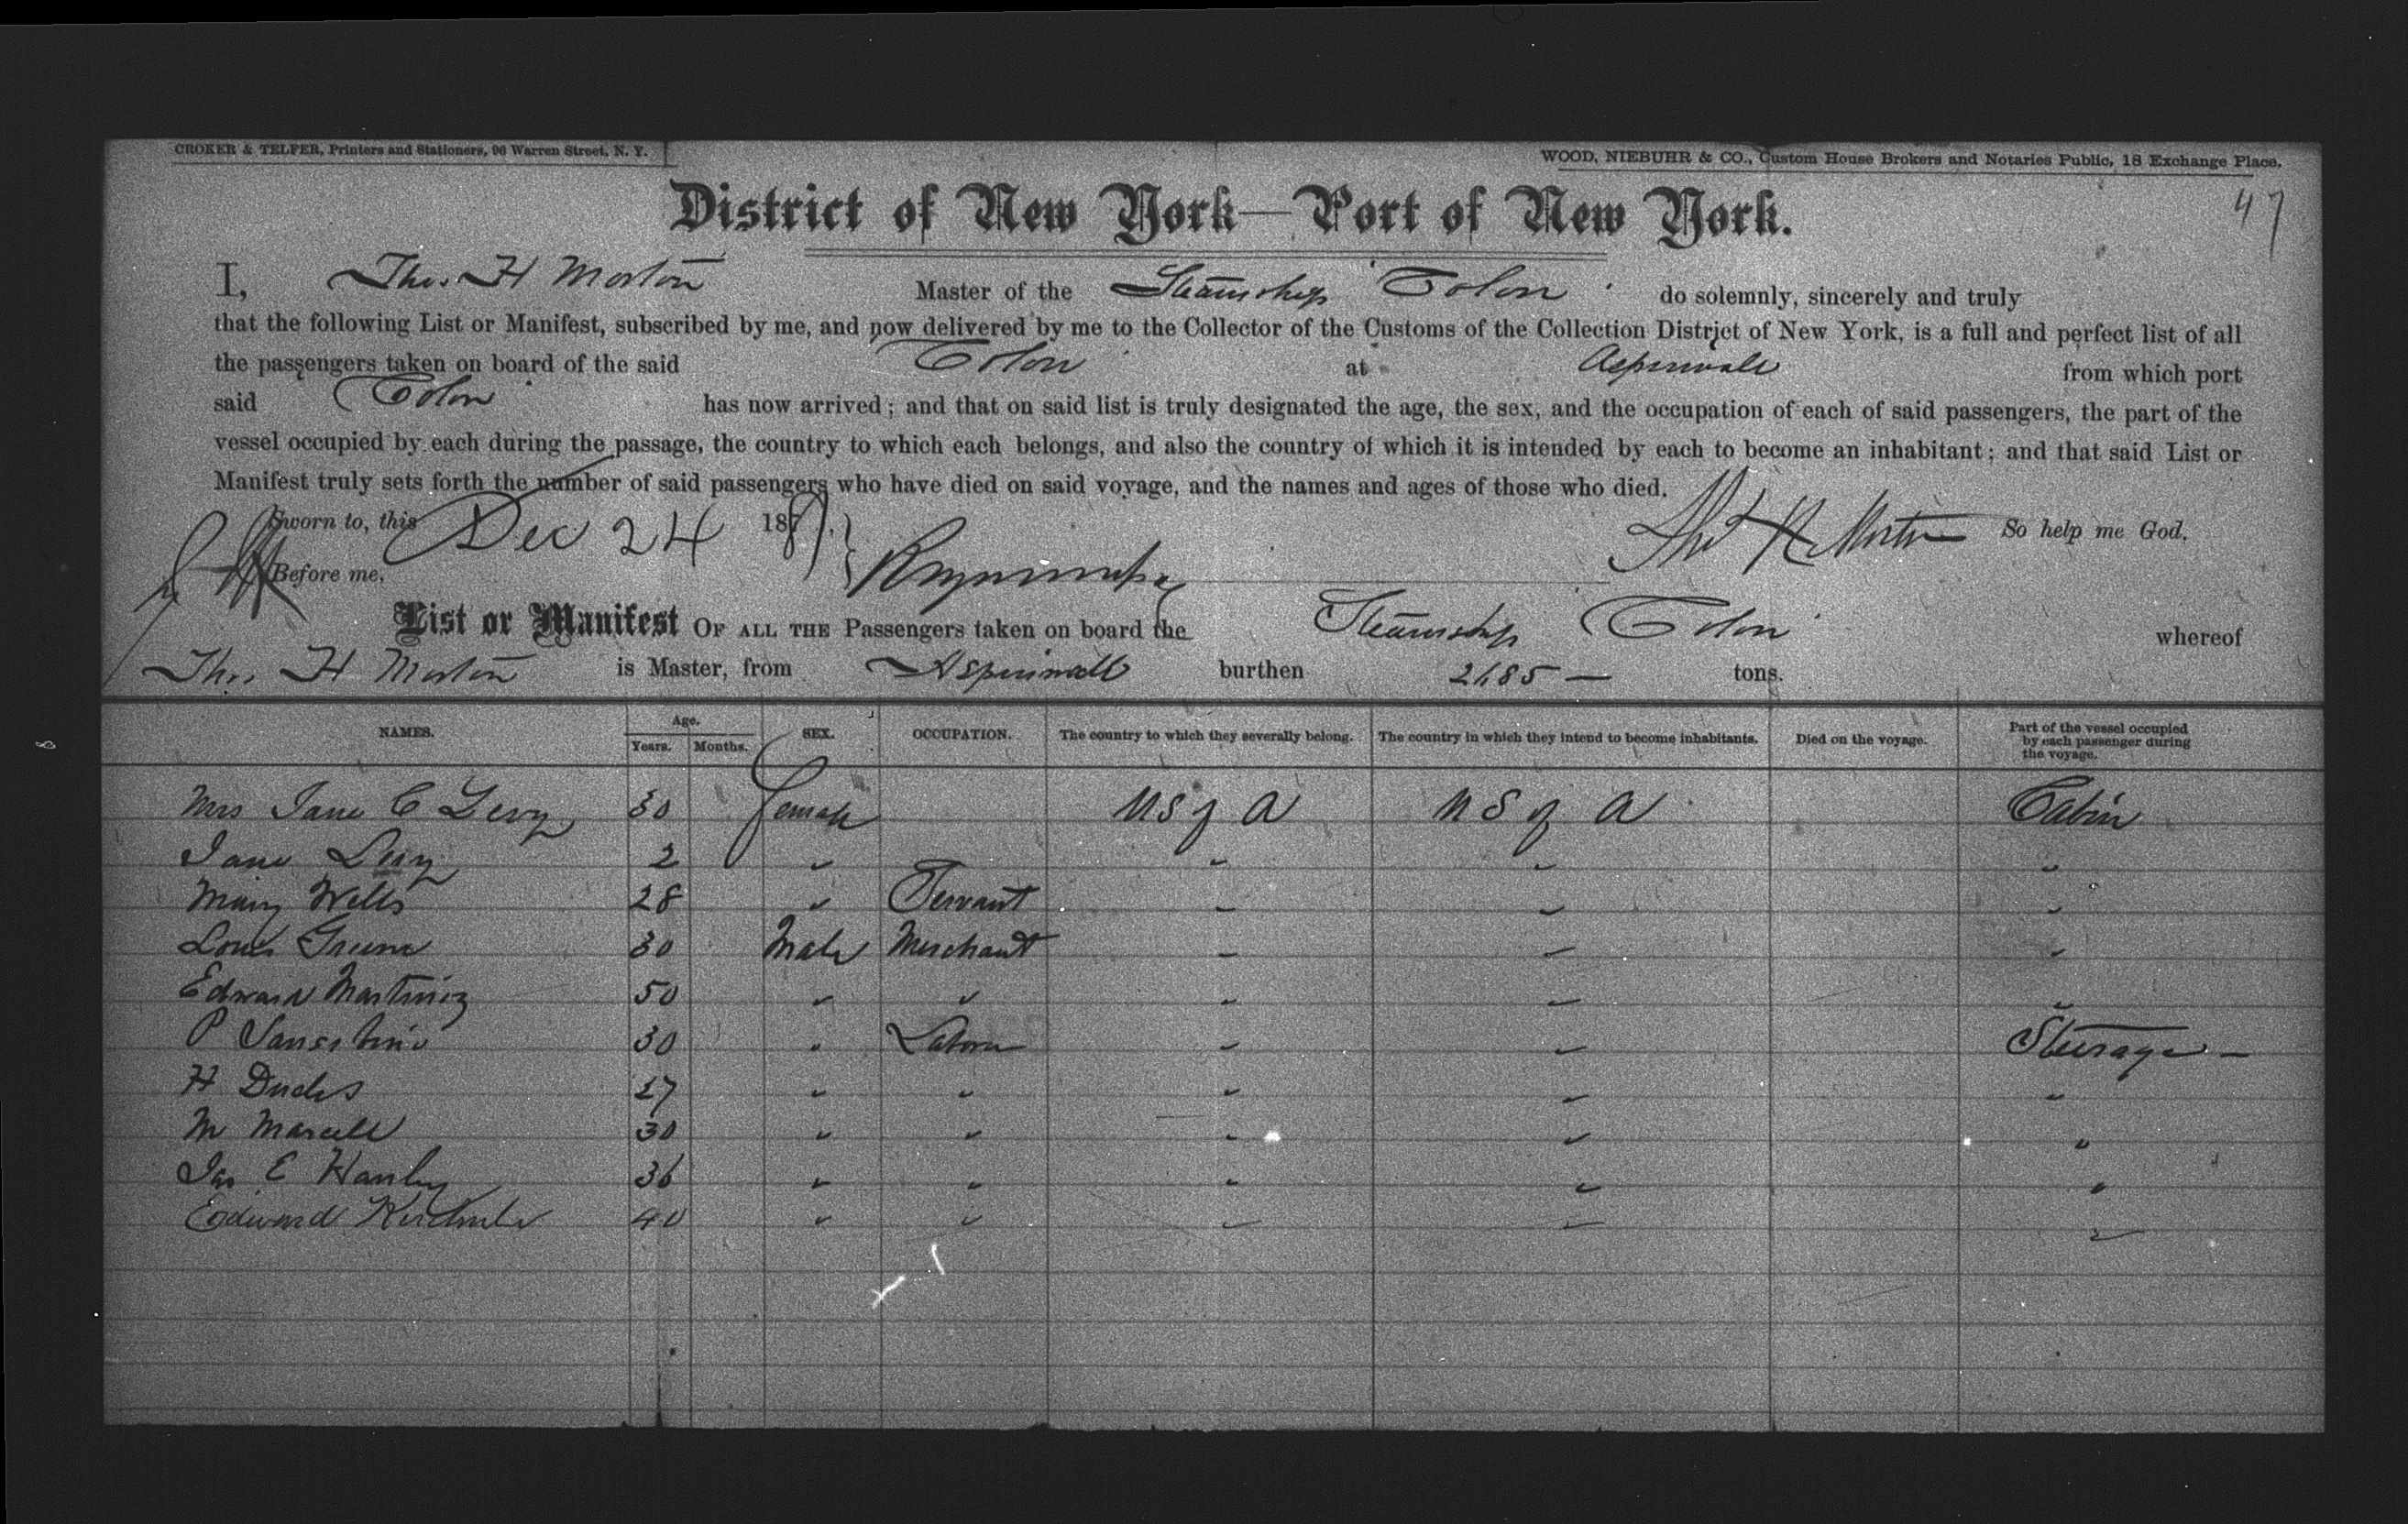 CROKER & TELFER, Printers and Stationers, 96 Warren Street, N. Y.
WOOD, NIEBUHR & CO., Custom House Brokers and Notaries Public, 18 Exchange Place.
47
District of New York—Port of New York.
I, Thos. H Morton Master of the Steamship Colon do solemnly, sincerely and truly
that the following List or Manifest, subscribed by me, and now delivered by me to the Collector of the Customs of the Collection District of New York, is a full and perfect list of all
the passengers taken on board of the said Colon at Aspinwall from which port
said Colon has now arrived; and that on said list is truly designated the age, the sex, and the occupation of each of said passengers, the part of the
vessel occupied by each during the passage, the country to which each belongs, and also the country of which it is intended by each to become an inhabitant; and that said List or
Manifest truly sets forth the number of said passengers who have died on said voyage, and the names and ages of those who died.
Sworn to, this Dec 24 187 Thos H Morton So help me God.
Before me,
List or Manifest OF ALL THE Passengers taken on board the Steamship Colon whereof
Thos. H Morton is Master, from Aspinwall burthen 2685 — tons.
NAMES. Age. Years. Months. SEX. OCCUPATION. The country to which they severally belong. The country in which they intend to become inhabitants. Died on the voyage. Part of the vessel occupied by each passenger during the voyage.
Mrs Jane C Levy 30 Female US of A US of A Cabin
Jane Levy 2 " " " "
Mary Wells 28 " Servant " " "
Louis Greene 30 Male Merchant " " "
Edward Martinez 50 " " " " "
P 30 " Labore " " Steerage —
H 27 " " " " "
M Marcell 30 " " " " "
Jas E Hanley 36 " " " " "
Edward 40 " " " " "